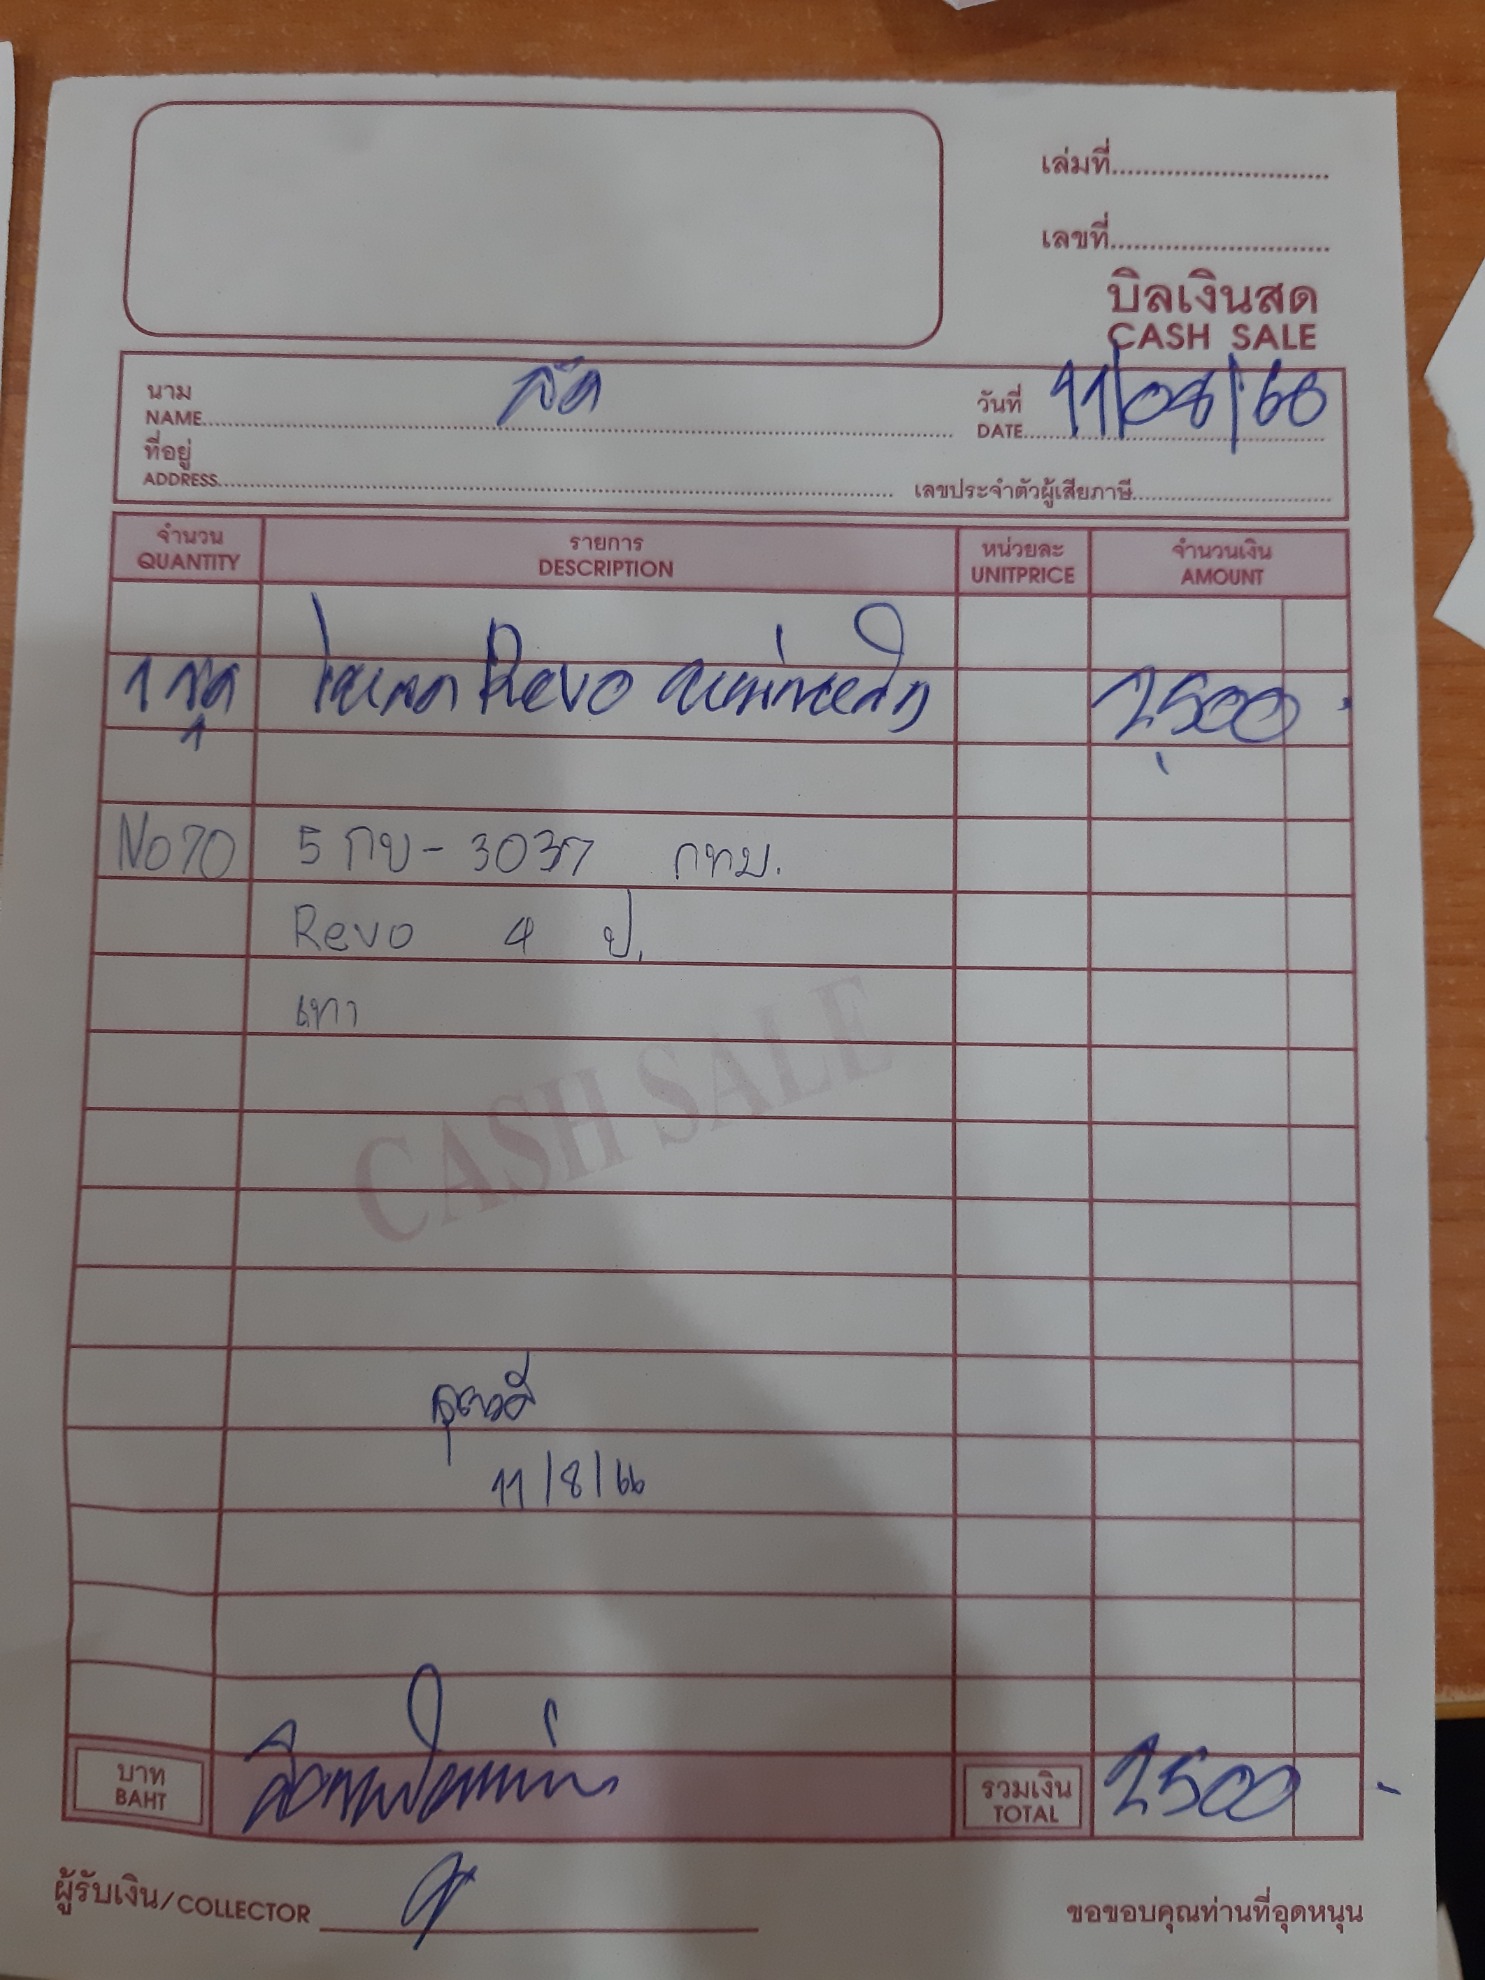 เล่มที่
เลขที่
บิลเงินสด
CASH SALE
นาม
NAME
วันที่ 11/08/66
DATE
ที่อยู่
ADDRESS
เลขประจำตัวผู้เสียภาษี
จำนวน รายการ หน่วยละ จำนวนเงิน
QUANTITY DESCRIPTION UNITPRICE AMOUNT
1 ชุด Revo 2500.
No70 5 กบ - 3037 กทม.
Revo 4 ป.
เทา
CASH SALE
11/8/66
บาท รวมเงิน 2500 -
BAHT TOTAL
ผู้รับเงิน/COLLECTOR
ขอขอบคุณท่านที่อุดหนุน